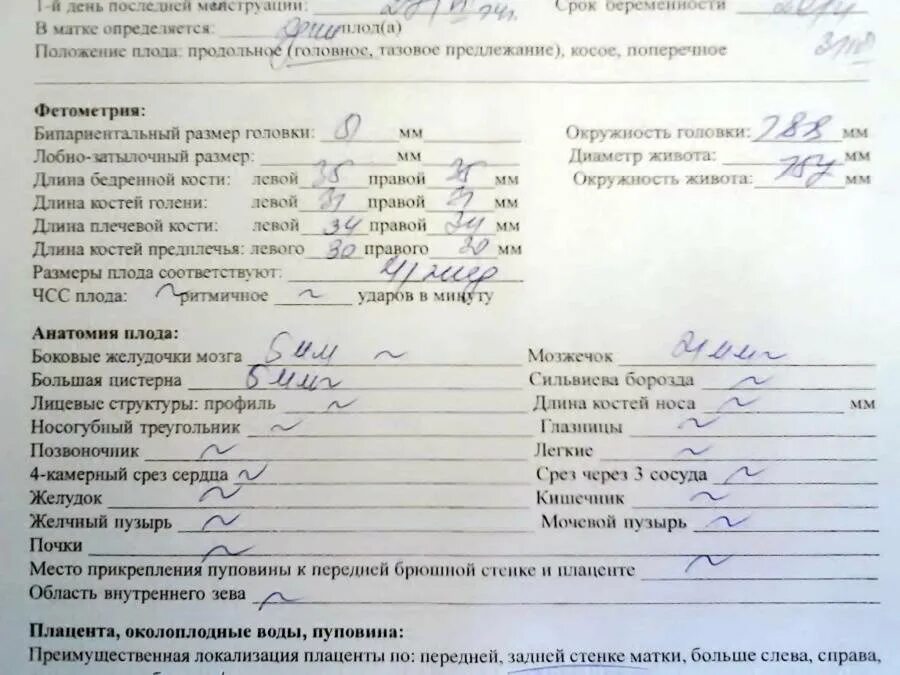 1-й день последней менструации: Срок беременности
В матке определяется: один плод(а)
Положение плода: продольное (головное, тазовое предлежание), косое, поперечное
Фетометрия:
Бипариентальный размер головки: мм Окружность головки: 188 мм
Лобно-затылочный размер: мм Диаметр живота: мм
Длина бедренной кости: левой 35 правой 35 мм Окружность живота: 157 мм
Длина костей голени: левой 31 правой 31 мм
Длина плечевой кости: левой 34 правой 34 мм
Длина костей предплечья: левого 30 правого 30 мм
Размеры плода соответствуют:
ЧСС плода: ~ ритмичное ~ ударов в минуту
Анатомия плода:
Боковые желудочки мозга 6 мм ~ Мозжечок 21 мм ~
Большая цистерна 6 мм ~ Сильвиева борозда ~
Лицевые структуры: профиль ~ Длина костей носа ~ мм
Носогубный треугольник ~ Глазницы ~
Позвоночник ~ Легкие ~
4-камерный срез сердца ~ Срез через 3 сосуда ~
Желудок ~ Кишечник ~
Желчный пузырь ~ Мочевой пузырь ~
Почки ~
Место прикрепления пуповины к передней брюшной стенке и плаценте ~
Область внутреннего зева ~
Плацента, околоплодные воды, пуповина:
Преимущественная локализация плаценты по: передней, задней стенке матки, больше слева, справа,